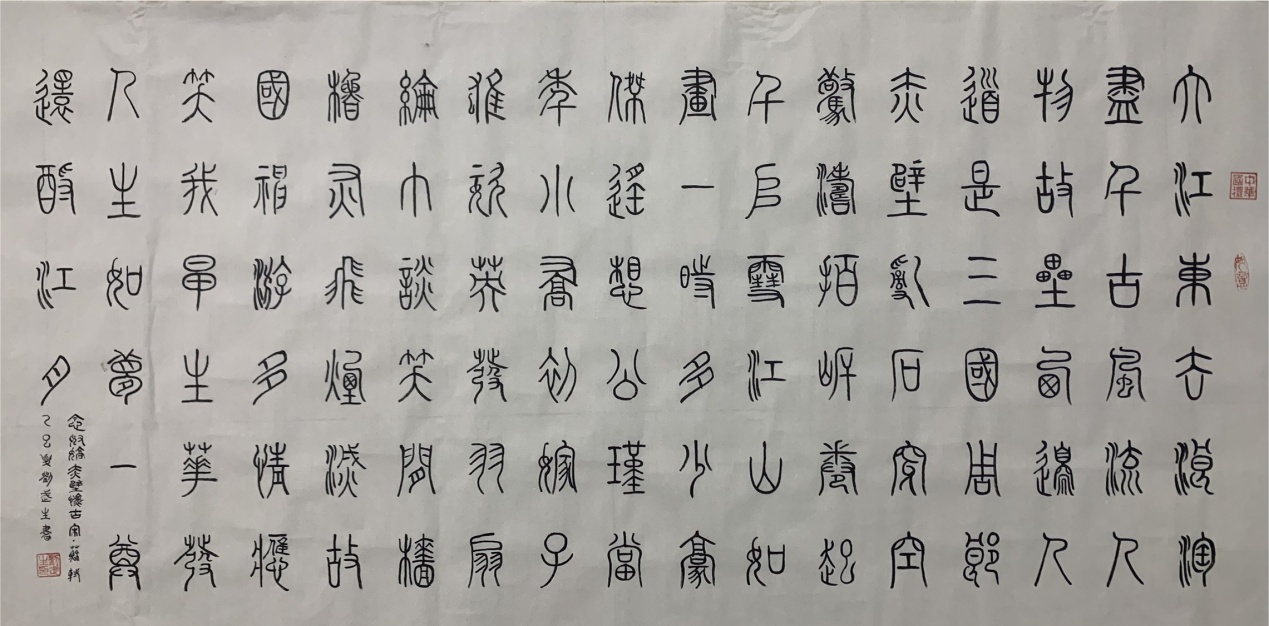 大江東去浪淘
盡千古風流人
物故壘西邊人
道是三國周郎
赤壁亂石穿空
驚濤拍岸卷起
千堆雪江山如
畫一時多少豪
傑遙想公瑾當
年小喬初嫁了
雄姿英發羽扇
綸巾談笑間檣
櫓灰飛煙滅故
國神游多情應
笑我早生華發
人生如夢一尊
還酹江月
念奴嬌赤壁懷古宋·蘇軾
乙巳夏劉生書